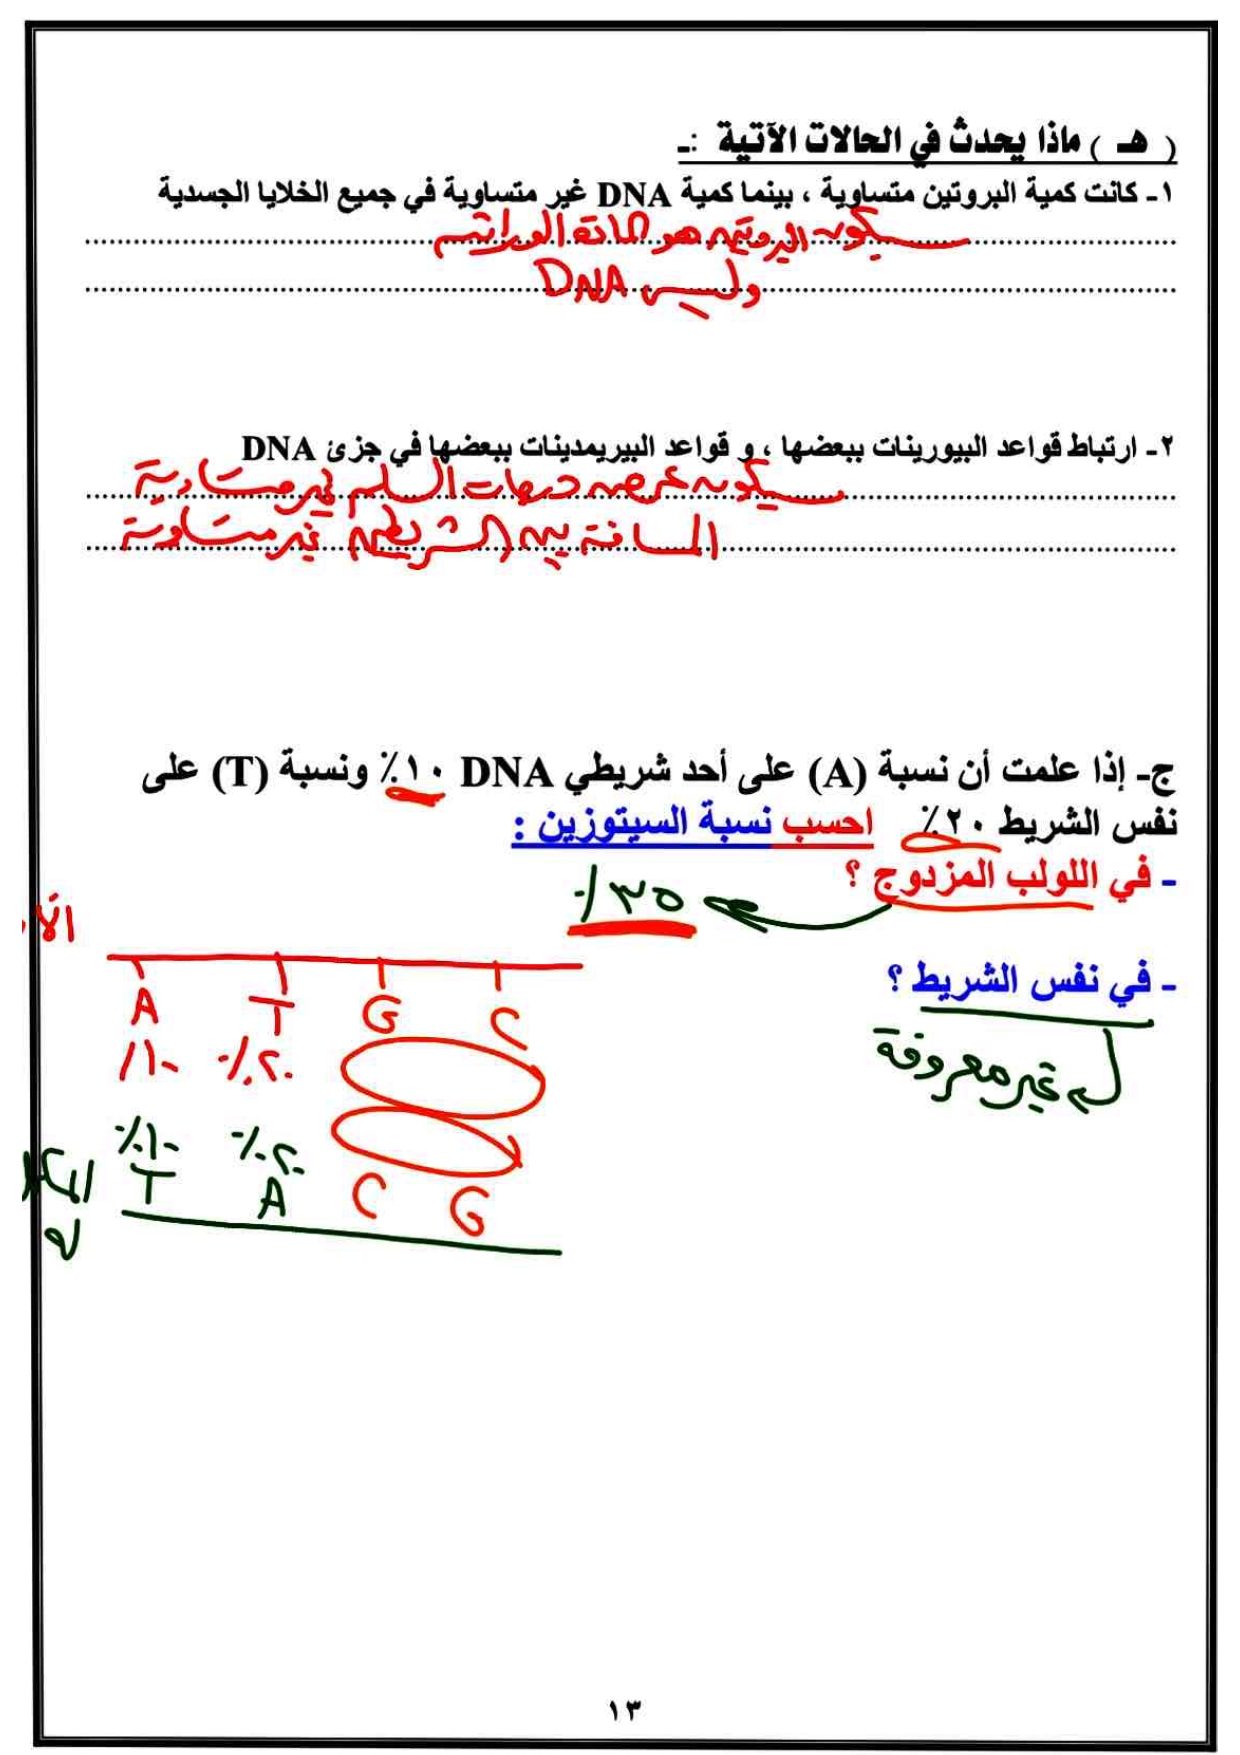 ( هـ ) ماذا يحدث في الحالات الآتية :ـ
١- كانت كمية البروتين متساوية ، بينما كمية DNA غير متساوية في جميع الخلايا الجسدية
سيكون البروتين هو المادة الوراثية
وليس DNA
٢- ارتباط قواعد البيورينات ببعضها ، و قواعد البيريمدينات ببعضها في جزئ DNA
سيكون عرض درجات السلم غير متساوية
المسافة بين الشريطين غير متساوية
ج- إذا علمت أن نسبة (A) على أحد شريطي DNA ١٠٪ ونسبة (T) على
نفس الشريط ٢٠٪ احسب نسبة السيتوزين :
- في اللولب المزدوج ؟
٣٥٪
- في نفس الشريط ؟
غير معروفة
A T G C
١٠٪ ٢٠٪
١٠٪ ٢٠٪
T A C G
١٣